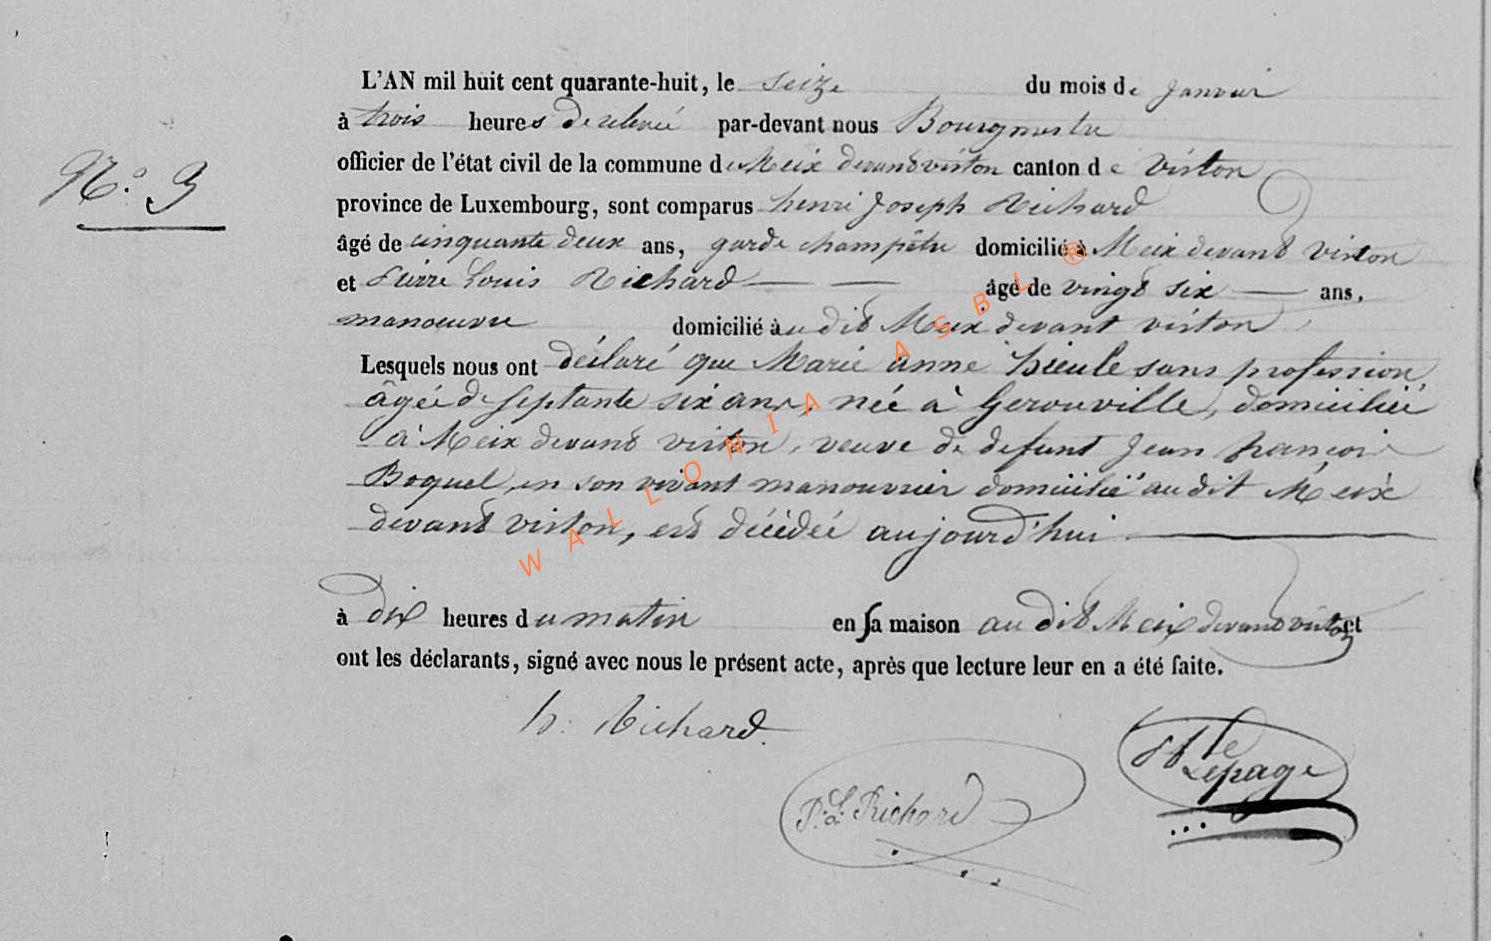 L'AN mil huit cent quarante-huit, le seize du mois de janvier
à trois heures de relevée par-devant nous Bourgmestre
officier de l'état civil de la commune de Meix devant virton canton de virton
N.° 3
province de Luxembourg, sont comparus henri Joseph Richard
âgé de cinquante deux ans, garde champêtre domicilié à Meix devant virton
et Pierre Louis Richard âgé de vingt six ans,
manoeuvre domicilié au dit Meix devant virton
Lesquels nous ont déclaré que Marie anne sans profession,
âgée de septante six ans, née à Gerouville, domiciliée
à Meix devant virton, veuve de defunt Jean françois
Boquel, en son vivant manouvrier domicilié au dit Meix
devant virton, est décédée aujourd'hui
à dix heures du matin en sa maison au dit Meix devant virton et
ont les déclarants, signé avec nous le présent acte, après que lecture leur en a été faite.
h. Richard.
Lepage
P. L. Richard
WALLONIA ASBL ®